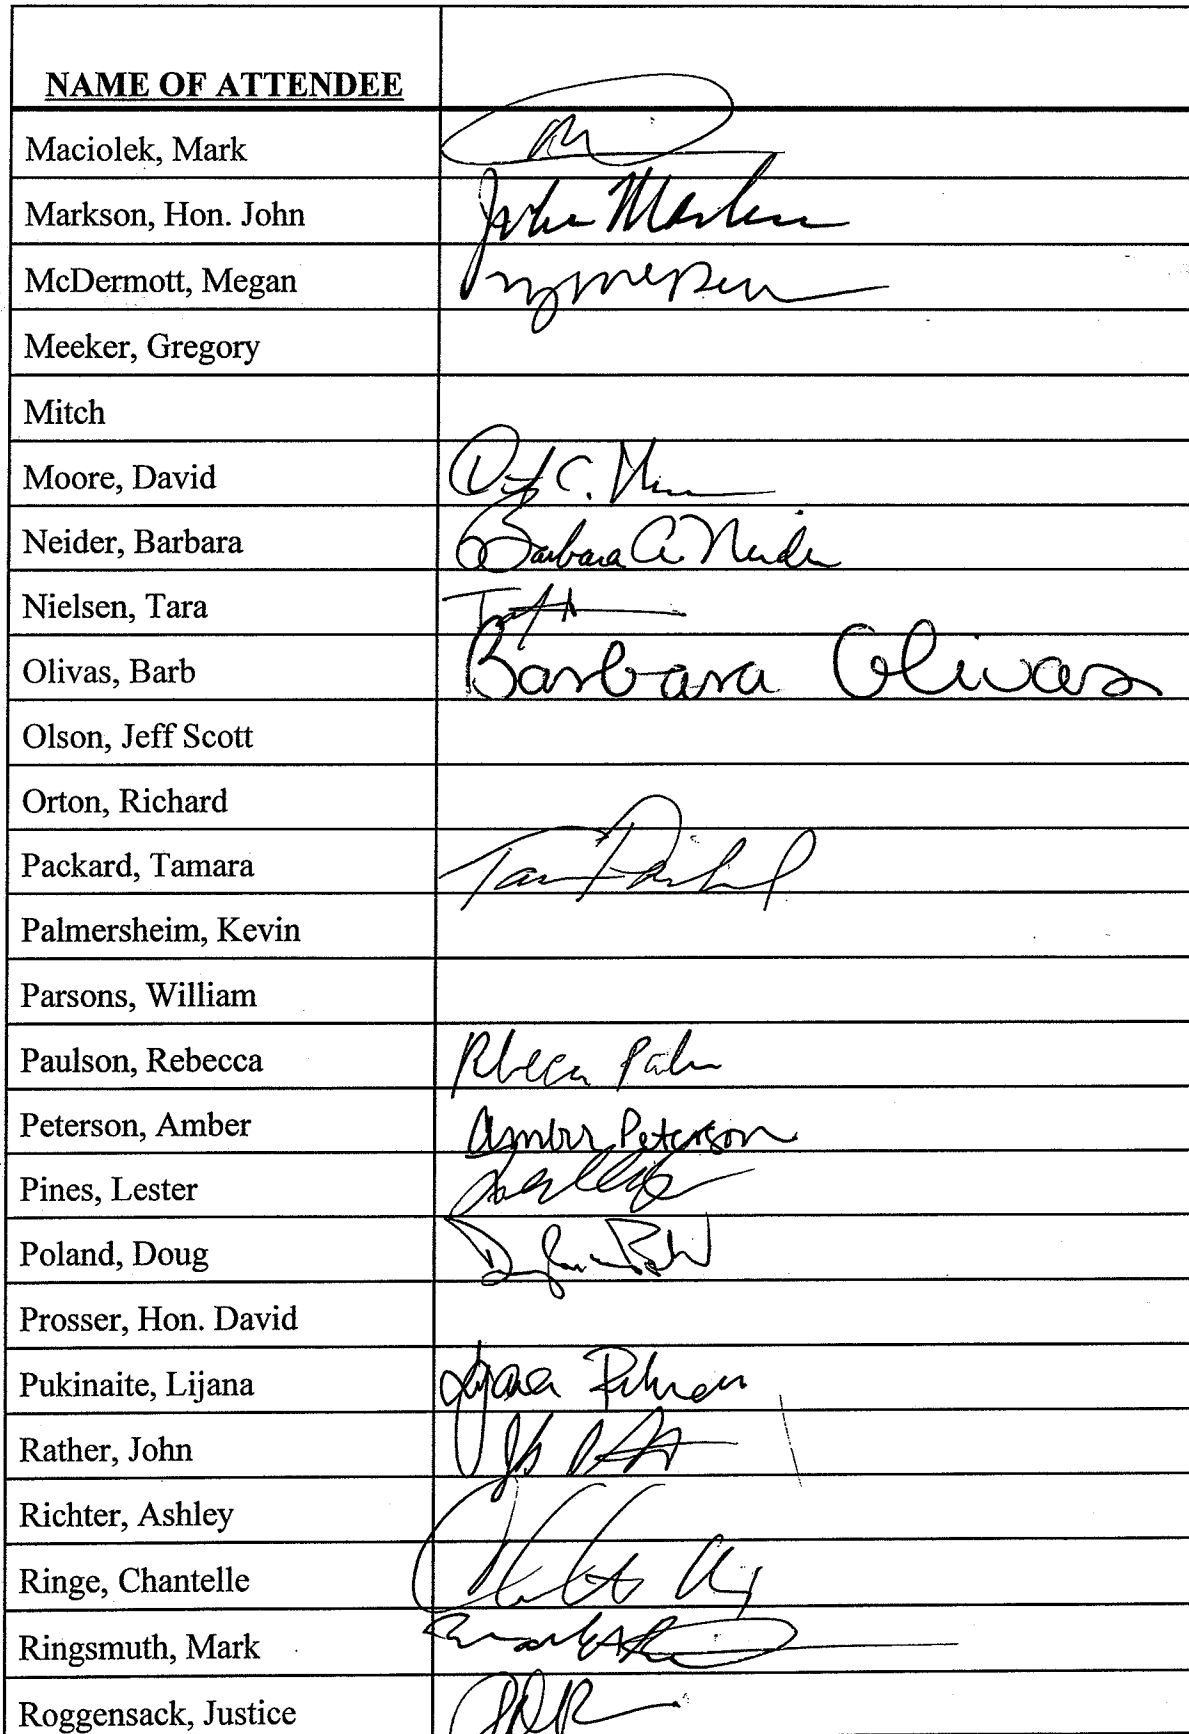 NAME OF ATTENDEE
Maciolek, Mark
Markson, Hon. John John Markson
McDermott, Megan
Meeker, Gregory
Mitch
Moore, David
Neider, Barbara Barbara A. Neider
Nielsen, Tara
Olivas, Barb Barbara Olivas
Olson, Jeff Scott
Orton, Richard
Packard, Tamara
Palmersheim, Kevin
Parsons, William
Paulson, Rebecca
Peterson, Amber Amber Peterson
Pines, Lester
Poland, Doug
Prosser, Hon. David
Pukinaite, Lijana
Rather, John
Richter, Ashley
Ringe, Chantelle
Ringsmuth, Mark
Roggensack, Justice